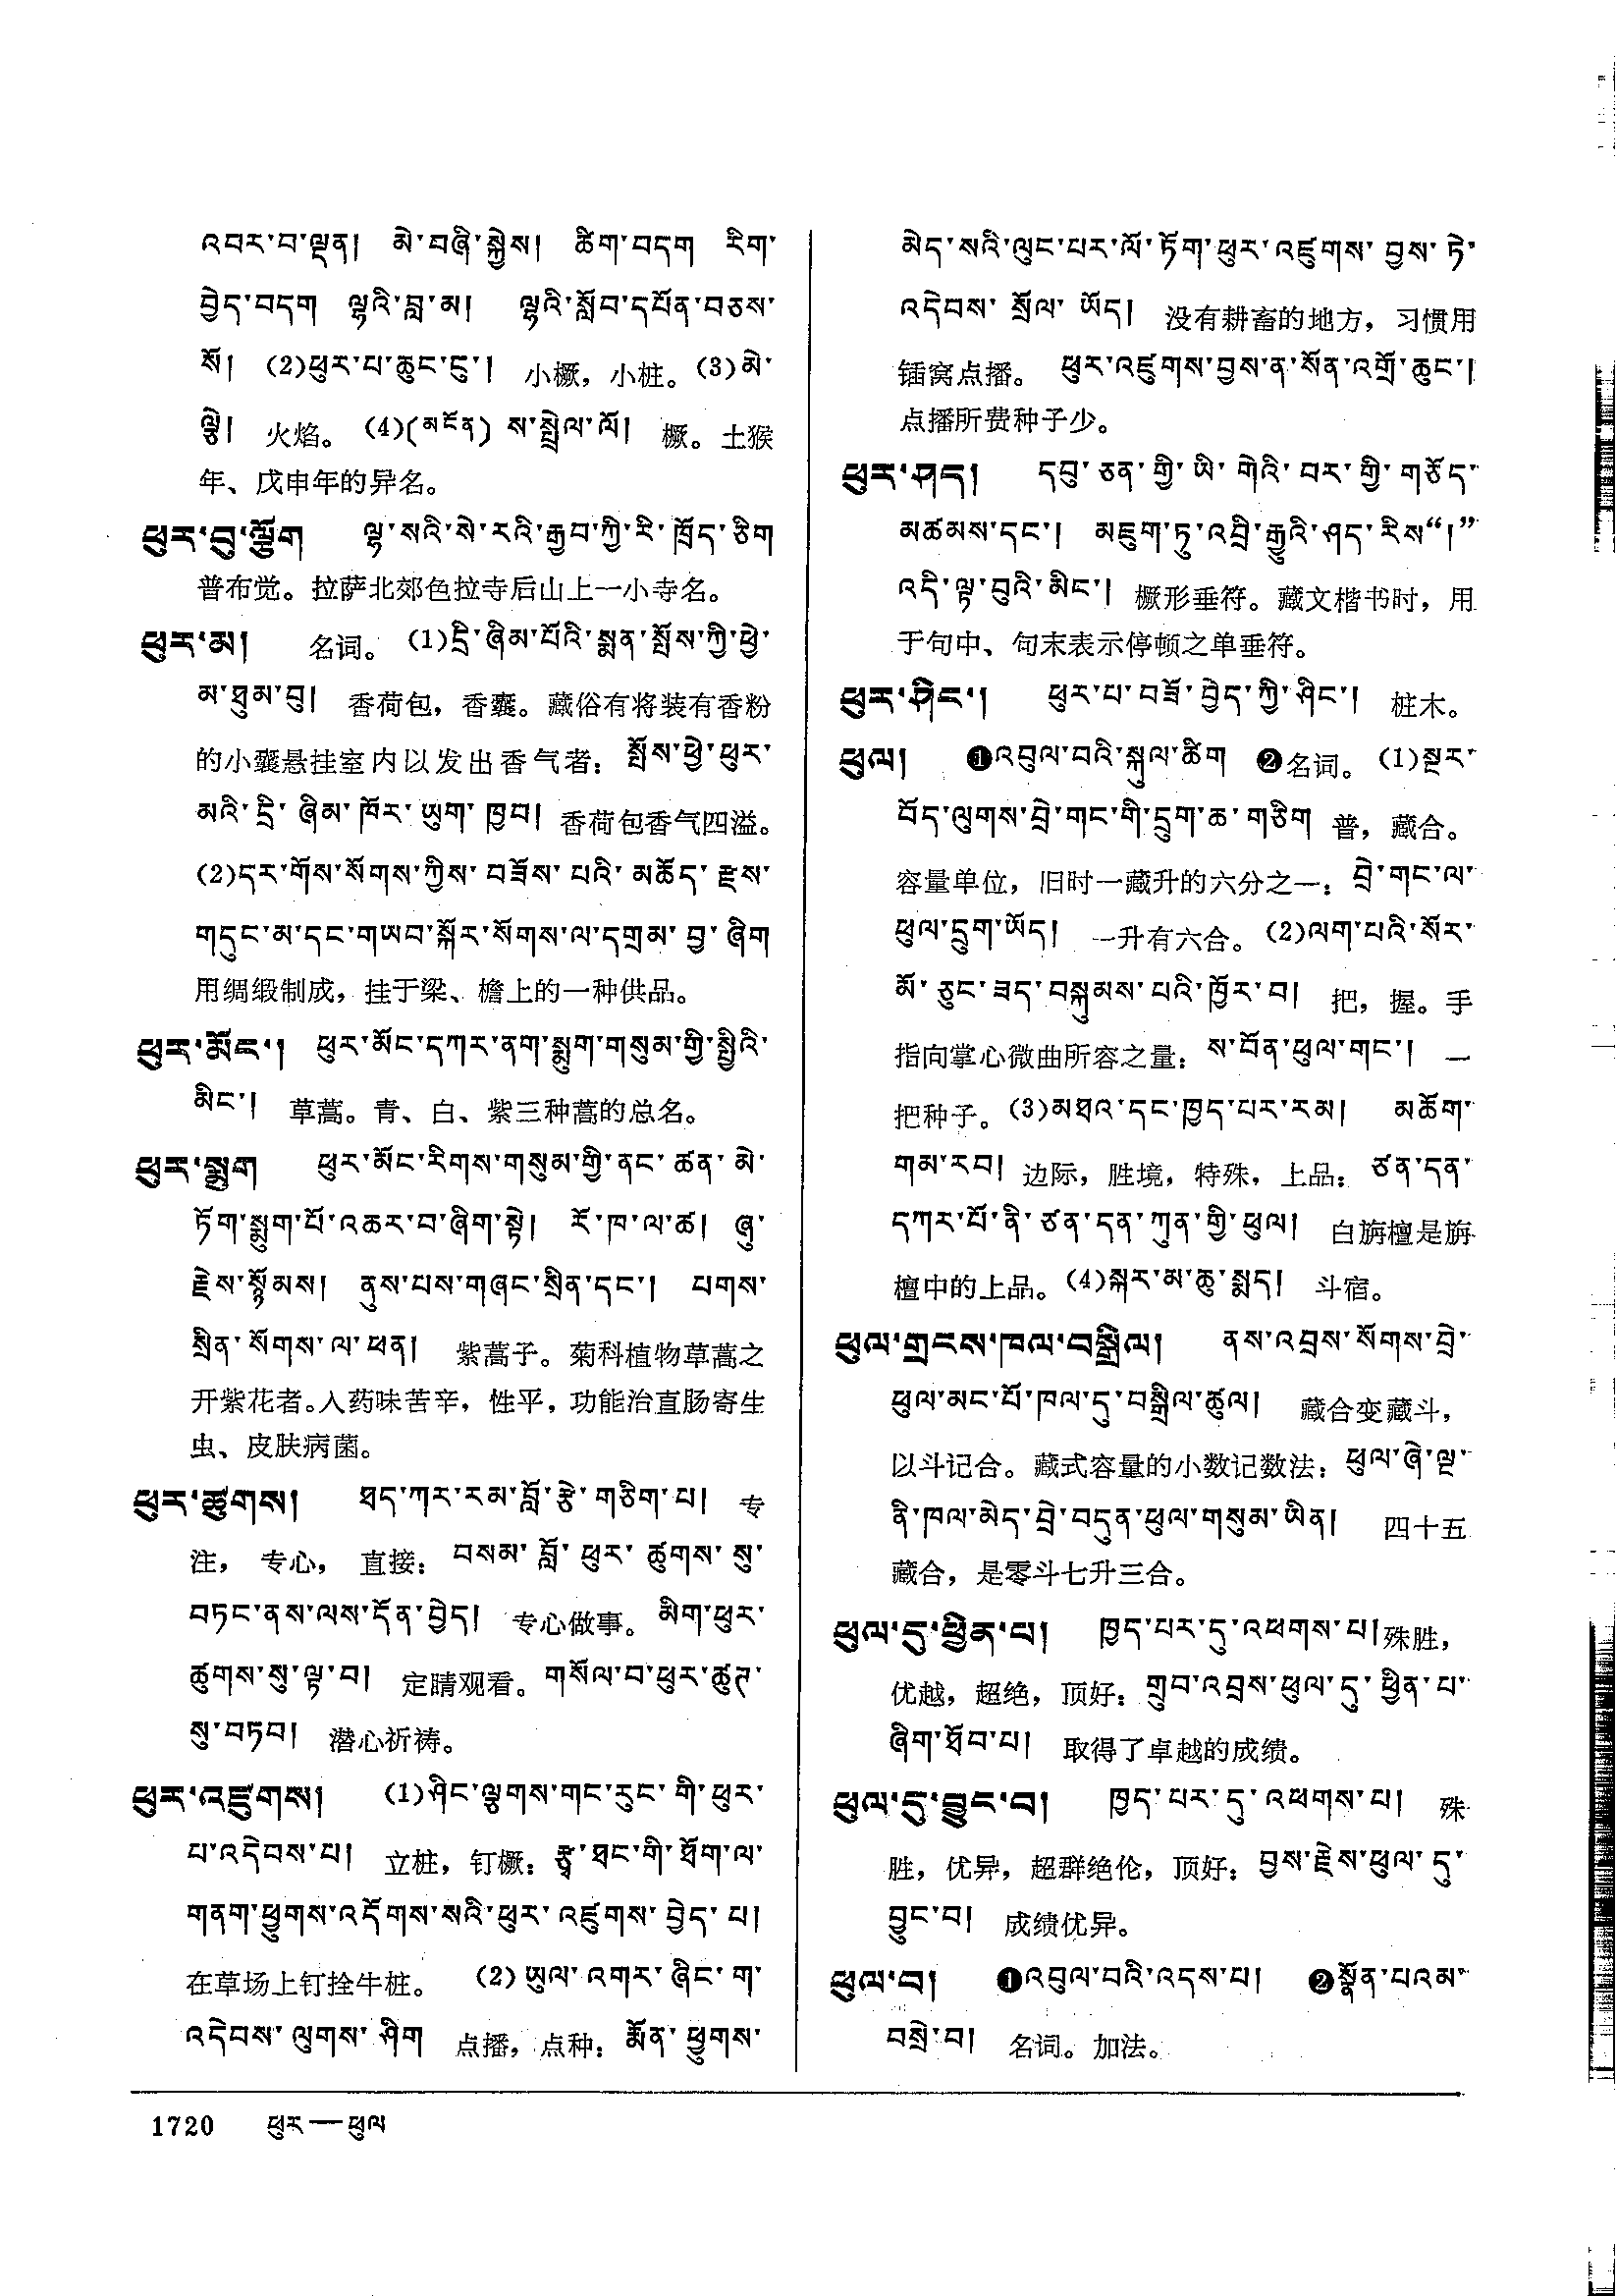 འབར་བ་ལྡན། མེ་བཞི་སྐྱེས། ཚིག་བདག རིག་
བྱེད་བདག ལྷའི་བླ་མ། ལྷའི་སློབ་དཔོན་བཅས་
སོ། (2)ཕུར་པ་ཆུང་ངུ་། 小橛，小桩。(3)མེ་
ལྕེ། 火焰。(4)(མངོན) ས་སྤྲེལ་ལོ། 橛。土猴
年、戊申年的异名。
ཕུར་བུ་ལྕོག ལྷ་སའི་སེ་རའི་རྒྱབ་ཀྱི་རི་ཁྲོད་ཅིག
普布觉。拉萨北郊色拉寺后山上一小寺名。
ཕུར་མ། 名词。(1)དྲི་ཞིམ་པོའི་སྨན་སྤོས་ཀྱི་ཕྱེ་
མ་ཐུམ་བུ། 香荷包，香囊。藏俗有将装有香粉
的小囊悬挂室内以发出香气者：སྤོས་ཕྱེ་ཕུར་
མའི་དྲི་ཞིམ་ཁོར་ཡུག་ཁྱབ། 香荷包香气四溢。
(2)དར་གོས་སོགས་ཀྱིས་བཟོས་པའི་མཆོད་རྫས་
གདུང་མ་དང་གཡབ་སྐོར་སོགས་ལ་དགྲམ་བྱ་ཞིག
用绸缎制成，挂于梁、檐上的一种供品。
ཕུར་མོང་། ཕུར་མོང་དཀར་ནག་སྨུག་གསུམ་གྱི་སྤྱིའི་
མིང་། 草蒿。青、白、紫三种蒿的总名。
ཕུར་སྨུག ཕུར་མོང་རིགས་གསུམ་གྱི་ནང་ཚན་མེ་
ཏོག་སྨུག་པོ་འཆར་བ་ཞིག་སྟེ། རོ་ཁ་ལ་ཚ། ཞུ་
རྗེས་སྙོམས། ནུས་པས་གཞང་སྲིན་དང་། པགས་
སྲིན་སོགས་ལ་ཕན། 紫蒿子。菊科植物草蒿之
开紫花者。入药味苦辛，性平，功能治直肠寄生
虫、皮肤病菌。
ཕུར་ཚུགས། ཐད་ཀར་རམ་བློ་རྩེ་གཅིག་པ། 专
注，专心，直接：བསམ་བློ་ཕུར་ཚུགས་སུ་
བཏང་ནས་ལས་དོན་བྱེད། 专心做事。མིག་ཕུར་
ཚུགས་སུ་ལྟ་བ། 定睛观看。གསོལ་བ་ཕུར་ཚུཊ་
སུ་བཏབ། 潜心祈祷。
ཕུར་འཛུགས། (1)ཤིང་ལྕགས་གང་རུང་གི་ཕུར་
པ་འདེབས་པ། 立桩，钉橛：རྩྭ་ཐང་གི་ཐོག་ལ་
གནག་ཕྱུགས་འདོགས་སའི་ཕུར་འཛུགས་བྱེད་པ།
在草场上钉拴牛桩。(2) ཡུལ་འགར་ཞིང་ག་
འདེབས་ལུགས་ཤིག 点播，点种：རྨོན་ཕྱུགས་
མེད་སའི་ལུང་པར་ལོ་ཏོག་ཕུར་འཛུགས་བྱས་ཏེ་
འདེབས་སྲོལ་ཡོད། 没有耕畜的地方，习惯用
锸窝点播。ཕུར་འཛུགས་བྱས་ན་སོན་འགྲོ་ཆུང་།
点播所费种子少。
ཕུར་ཤད། དབུ་ཅན་གྱི་ཡི་གེའི་བར་གྱི་གཅོད་
མཚམས་དང་། མཇུག་ཏུ་འབྲི་རྒྱུའི་ཤད་རིས“།”
འདི་ལྟ་བུའི་མིང་། 橛形垂符。藏文楷书时，用
于句中、句末表示停顿之单垂符。
ཕུར་ཤིང་། ཕུར་པ་བཟོ་བྱེད་ཀྱི་ཤིང་། 桩木。
ཕུལ། ❶འབུལ་བའི་སྐུལ་ཚིག ❷名词。(1)སྔར་
བོད་ལུགས་བྲེ་གང་གི་དྲུག་ཆ་གཅིག 普，藏合。
容量单位，旧时一藏升的六分之一：བྲེ་གང་ལ་
ཕུལ་དྲུག་ཡོད། 一升有六合。(2)ལག་པའི་སོར་
མོ་ཅུང་ཟད་བསྐུམས་པའི་ཁྱོར་བ། 把，握。手
指向掌心微曲所容之量：ས་བོན་ཕུལ་གང་། 一
把种子。(3)མཐའ་དང་ཁྱད་པར་རམ། མཆོག་
གམ་རབ། 边际，胜境，特殊，上品：ཙན་དན་
དཀར་པོ་ནི་ཙན་དན་ཀུན་གྱི་ཕུལ། 白旃檀是旃
檀中的上品。(4)སྐར་མ་ཆུ་སྨད། 斗宿。
ཕུལ་གྲངས་ཁལ་བསྒྲིལ། ནས་འབྲས་སོགས་བྲེ་
ཕུལ་མང་པོ་ཁལ་དུ་བསྒྲིལ་ཚུལ། 藏合变藏斗，
以斗记合。藏式容量的小数记数法：ཕུལ་ཞེ་ལྔ་
ནི་ཁལ་མེད་བྲེ་བདུན་ཕུལ་གསུམ་ཡིན། 四十五
藏合，是零斗七升三合。
ཕུལ་དུ་ཕྱིན་པ། ཁྱད་པར་དུ་འཕགས་པ།殊胜，
优越，超绝，顶好：གྲུབ་འབྲས་ཕུལ་དུ་ཕྱིན་པ་
ཞིག་ཐོབ་པ། 取得了卓越的成绩。
ཕུལ་དུ་བྱུང་བ། ཁྱད་པར་དུ་འཕགས་པ། 殊
胜，优异，超群绝伦，顶好：བྱས་རྗེས་ཕུལ་དུ་
བྱུང་བ། 成绩优异。
ཕུལ་བ། ❶འབུལ་བའི་འདས་པ། ❷སྣོན་པའམ་
བསྲེ་བ། 名词。加法。
1720 ཕུར—ཕུལ